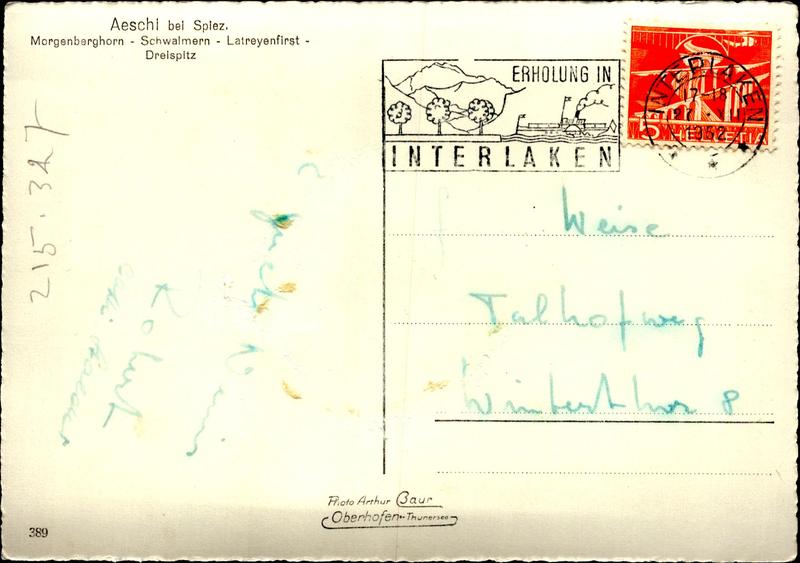 Aeschi bei Spiez.
Morgenberghorn - Schwalmern - Latreyenfirst -
Dreispitz
ERHOLUNG IN
INTERLAKEN
INTERLAKEN
17-18
27. VII
1952
5 HELVETIA
Weise
Talhofweg
Winterthur 8
215.327
Robert
Photo Arthur Baur
Oberhofen-Thunersee
389